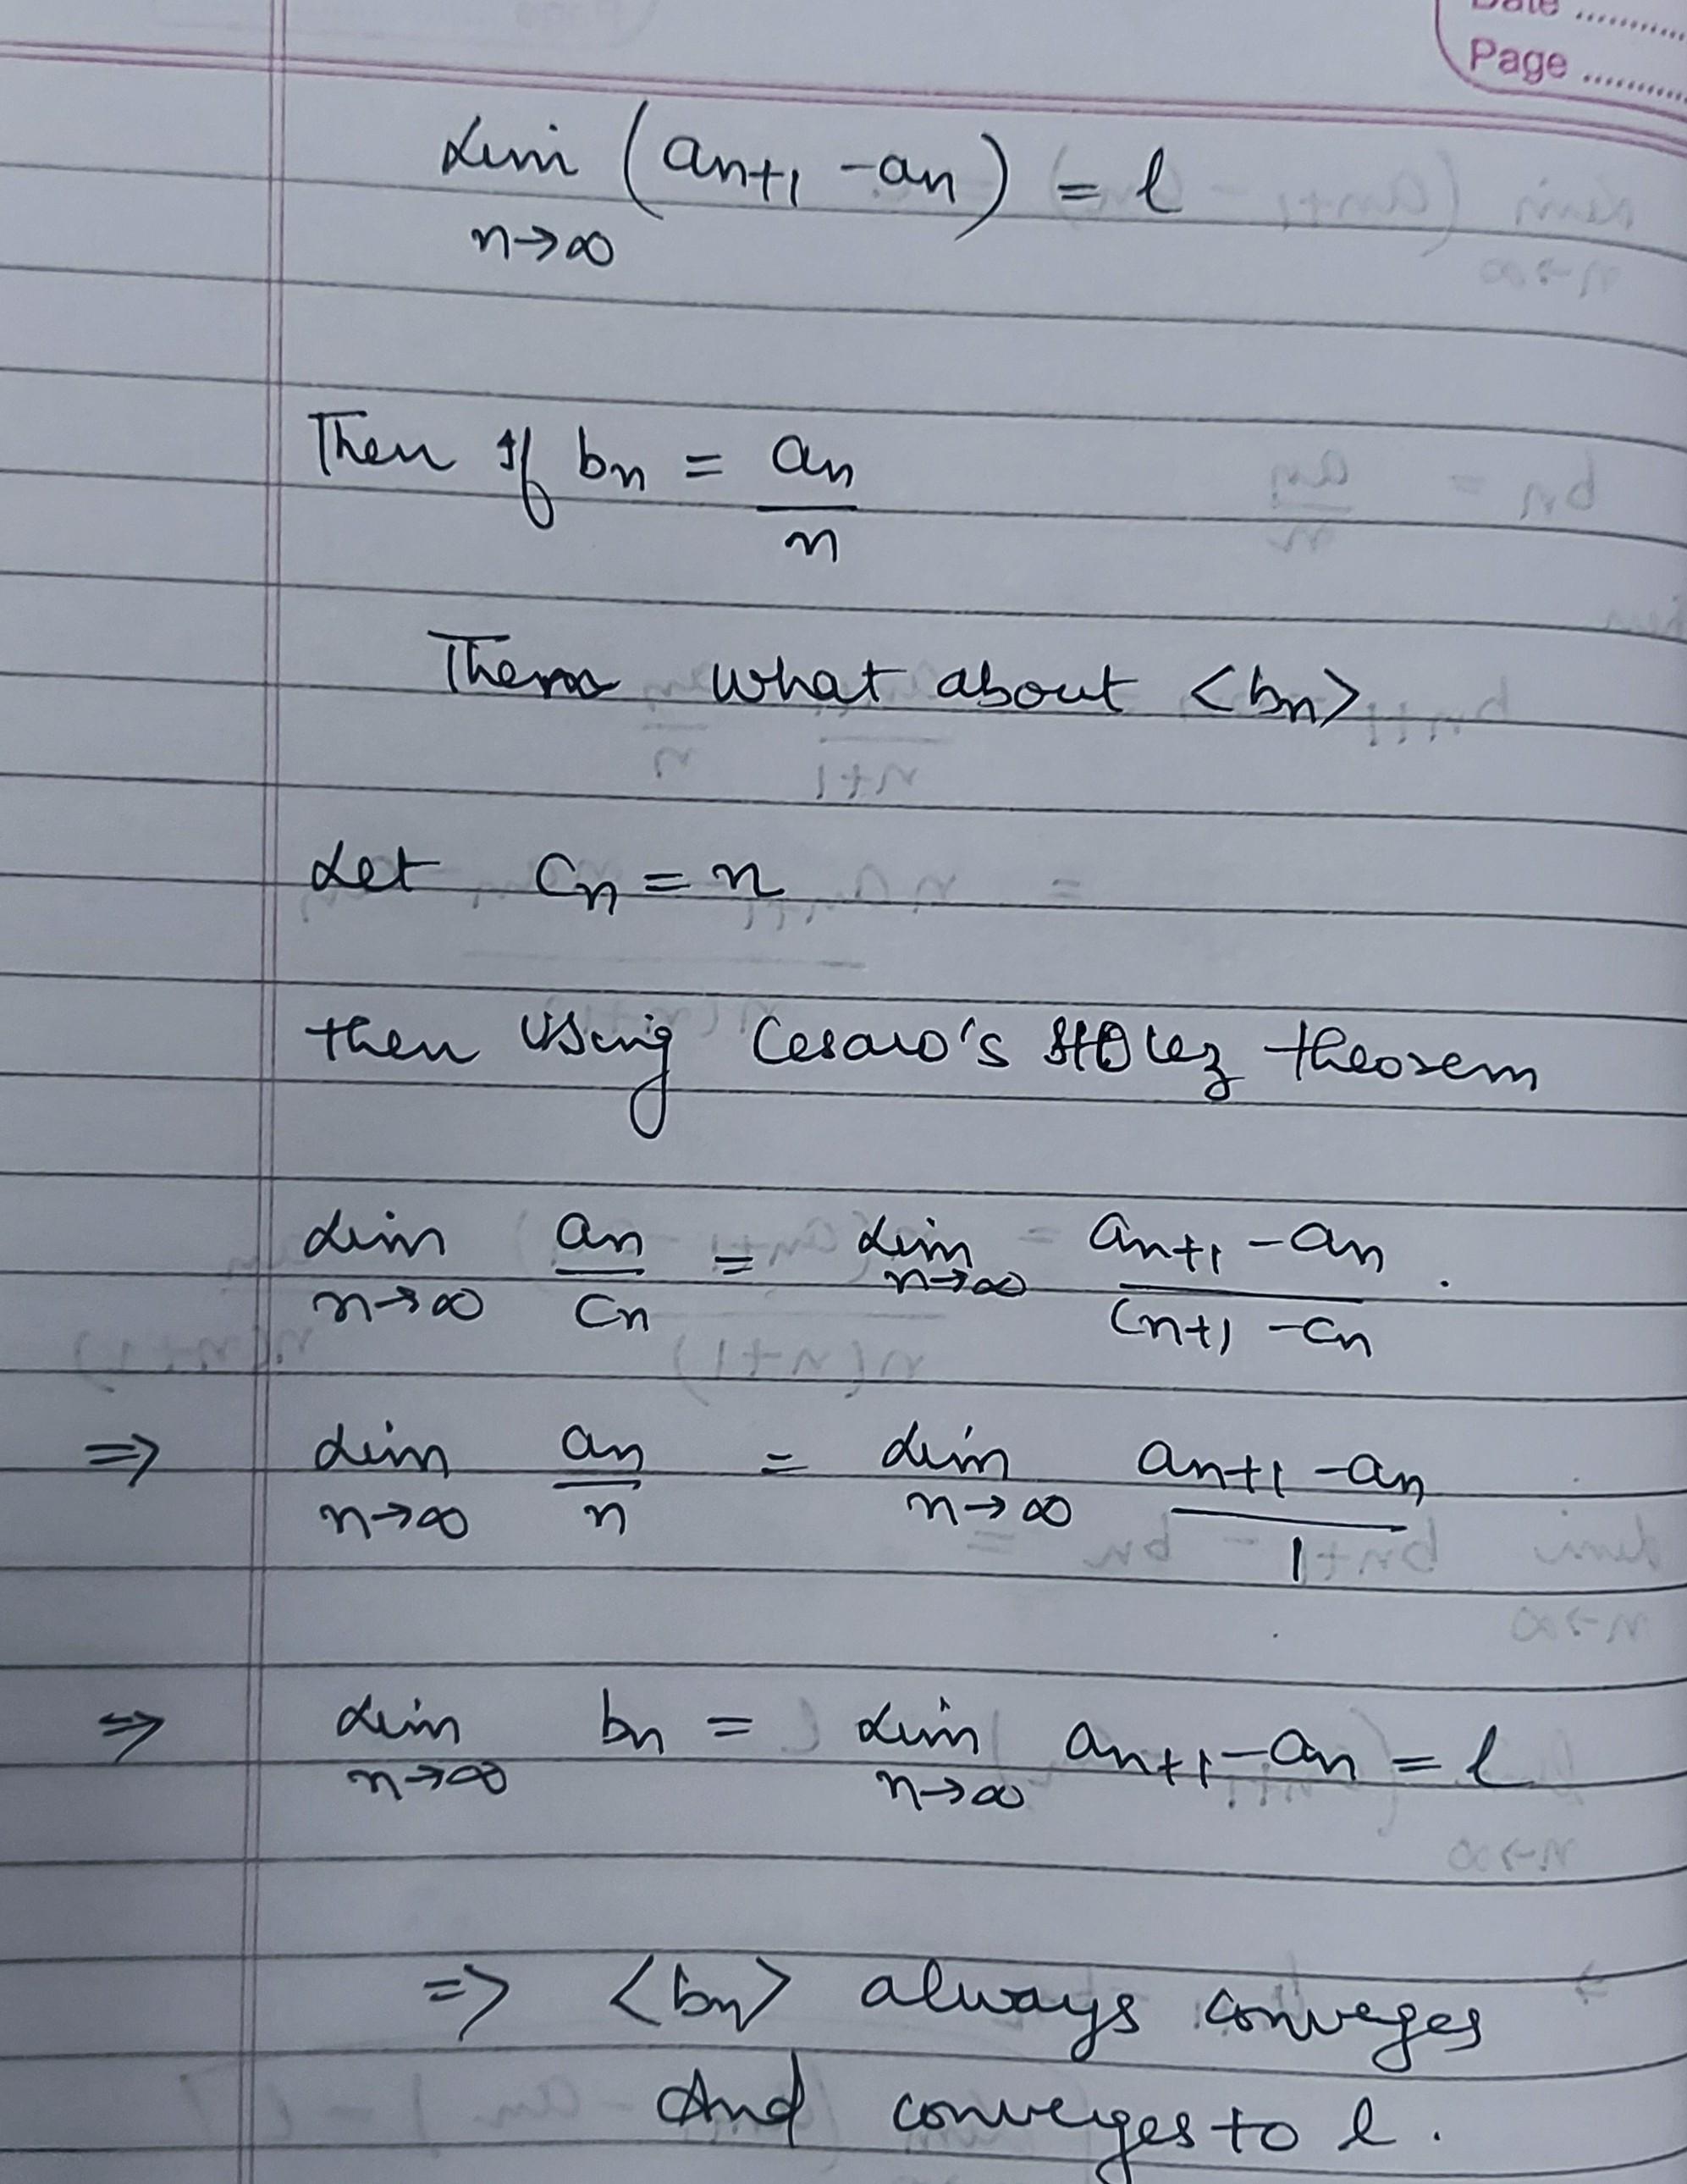 Date ..........
Page ..........
Lim (an+1 - an) = l
n→∞
Then If bn = an
n
Then what about <bn>
Let Cn = n
then Using Cesaro's Stolez theorem
Lim an = Lim an+1 - an .
n→∞ Cn n→∞ Cn+1 - Cn
⇒ Lim an = Lim an+1 - an
n→∞ n n→∞ 1
⇒ Lim bn = Lim an+1 - an = l
n→∞ n→∞
⇒ <bn> always conveges
And converges to l .